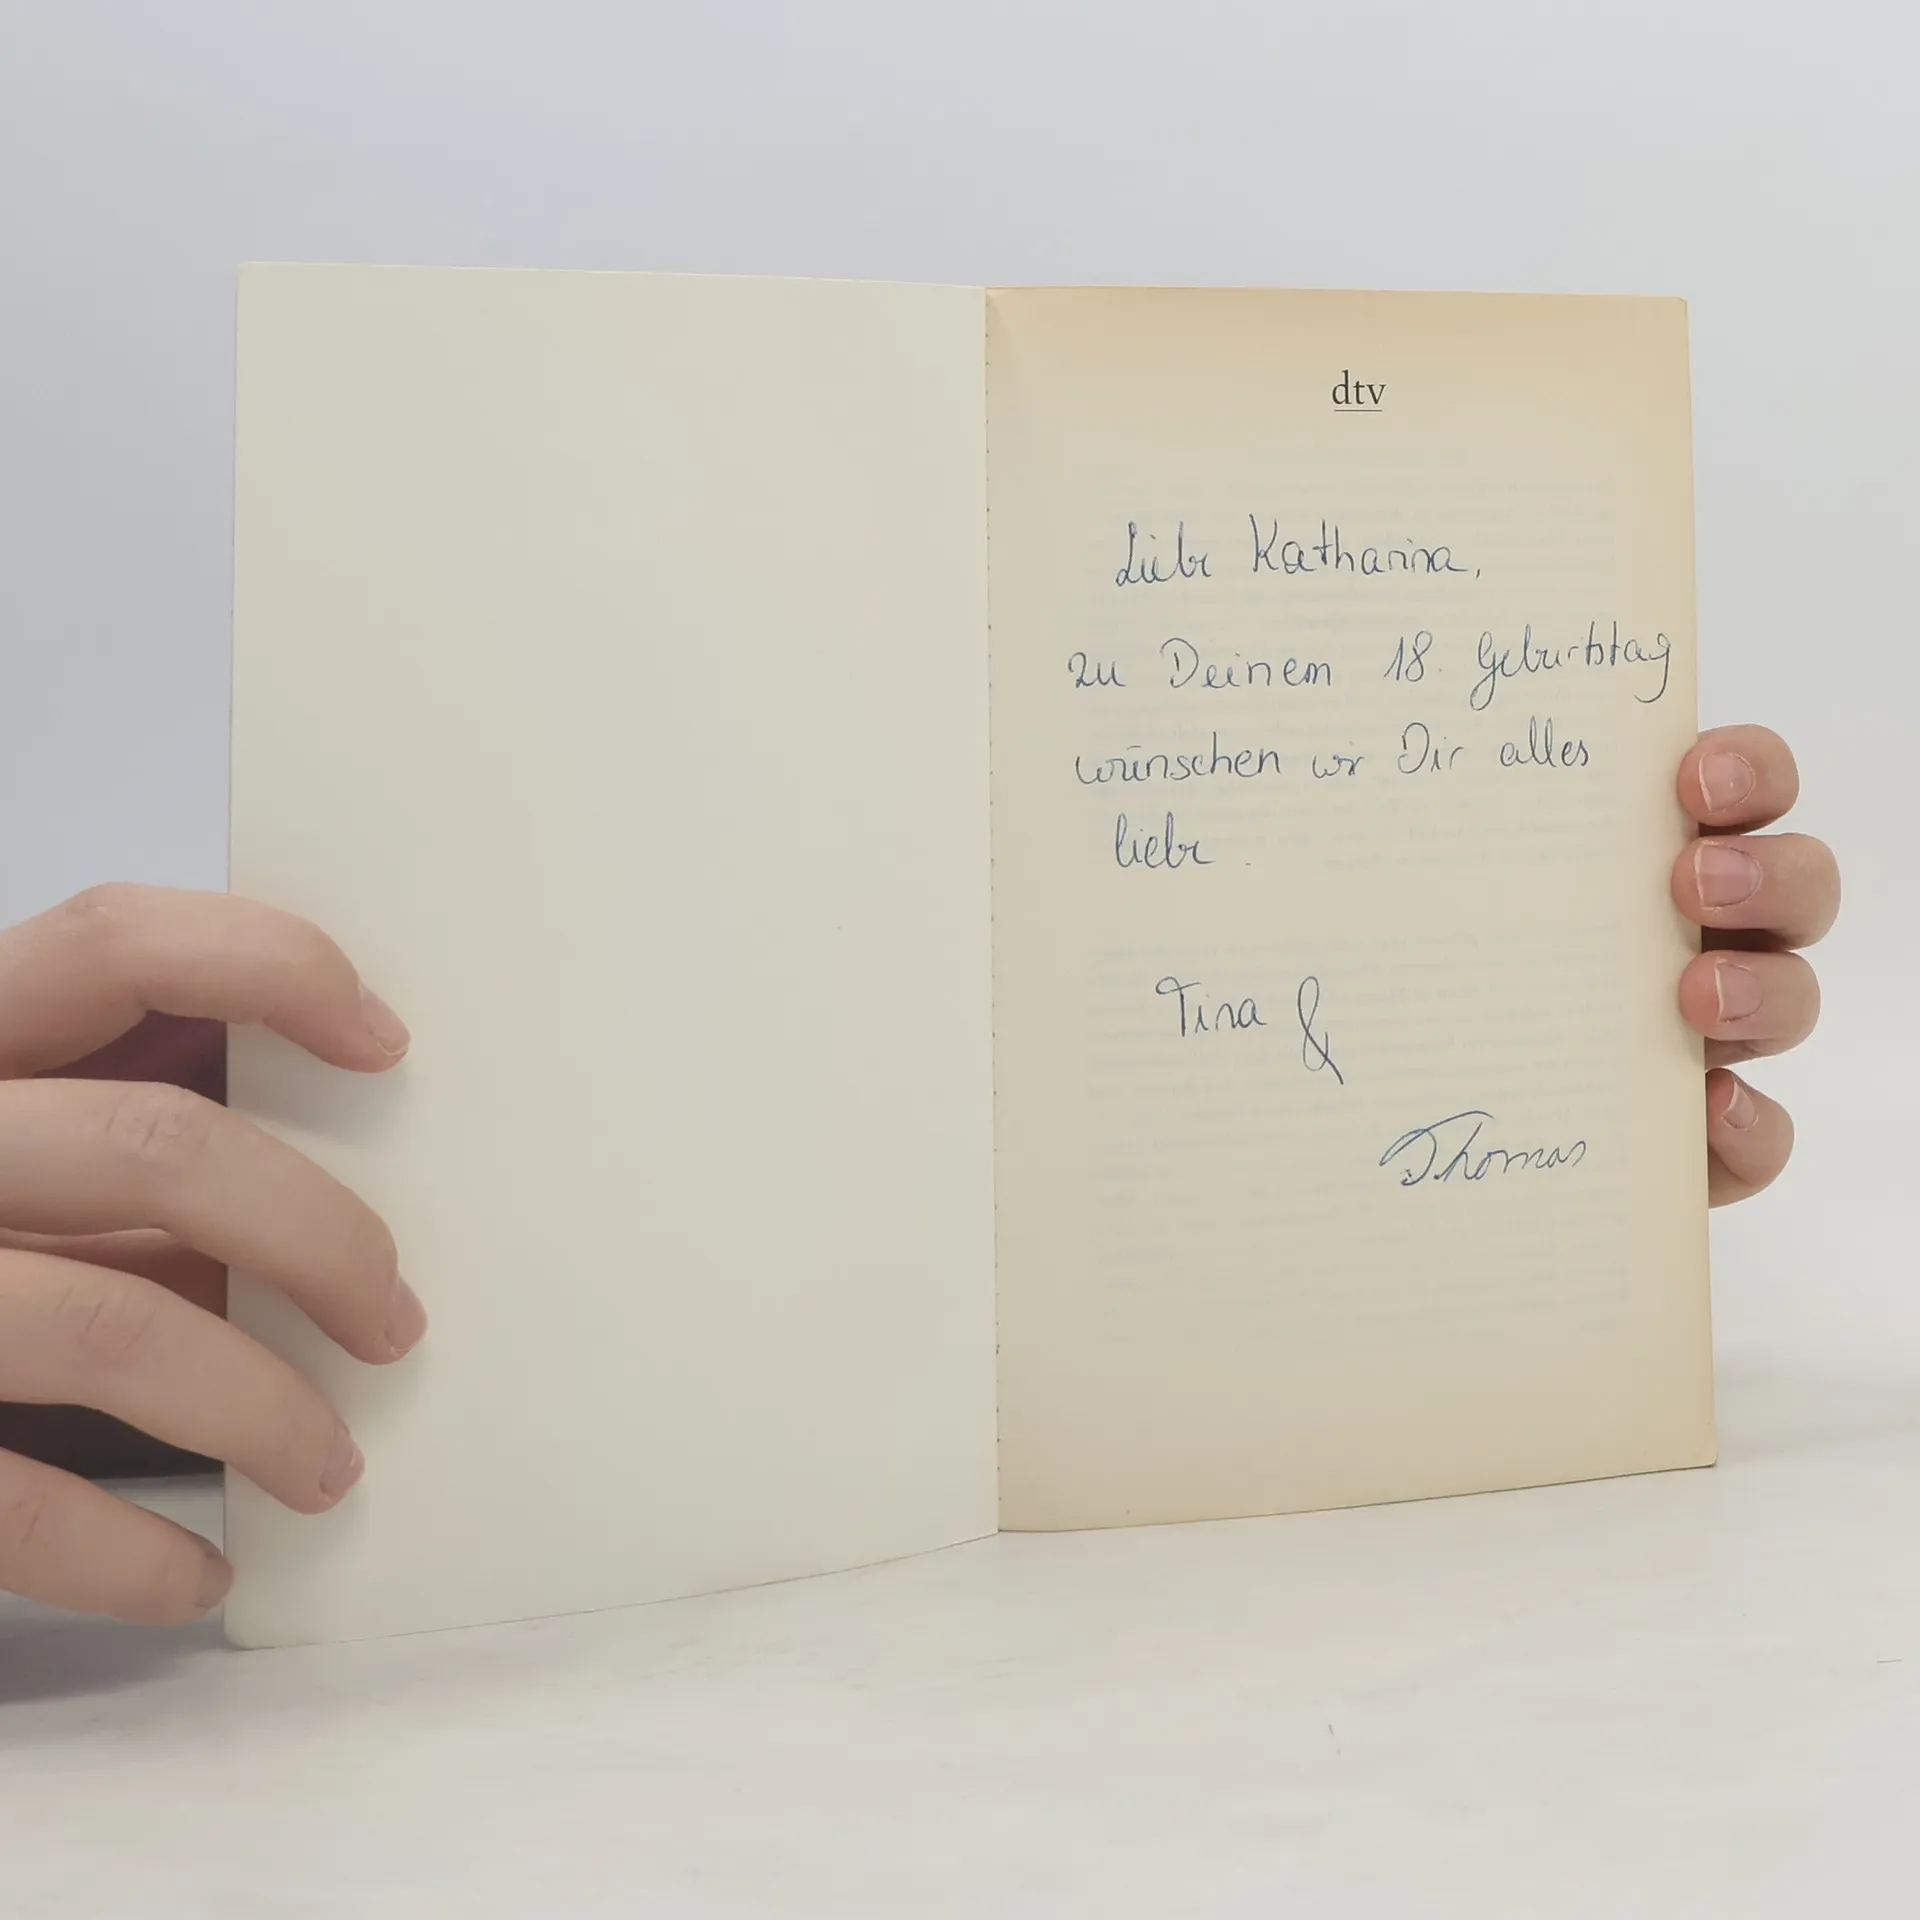 dtv
Liebe Katharina,
zu Deinem 18. Geburtstag
wünschen wir Dir alles
liebe.
Tina &
Thomas